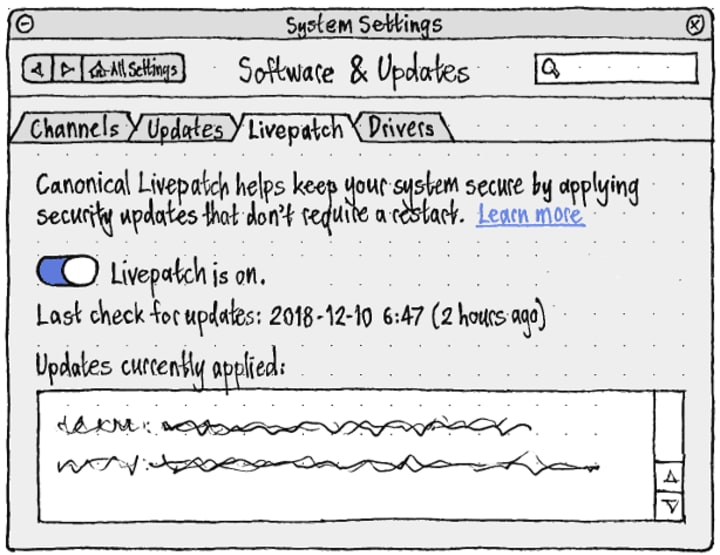 System Settings
All Settings
Software & Updates
Channels
Updates
Livepatch
Drivers
Canonical Livepatch helps keep your system secure by applying
security updates that don't require a restart. Learn more
Livepatch is on.
Last check for updates: 2018-12-10 6:47 (2 hours ago)
Updates currently applied: